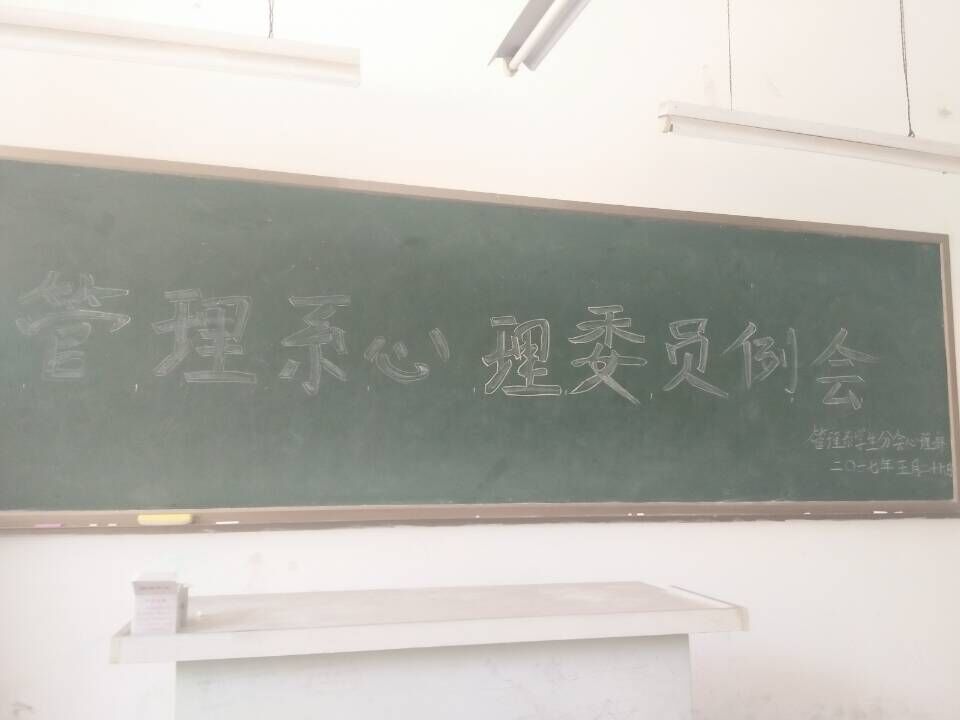 管理系心理委员例会
管理系学生分会心理部
二〇一七年五月二十日